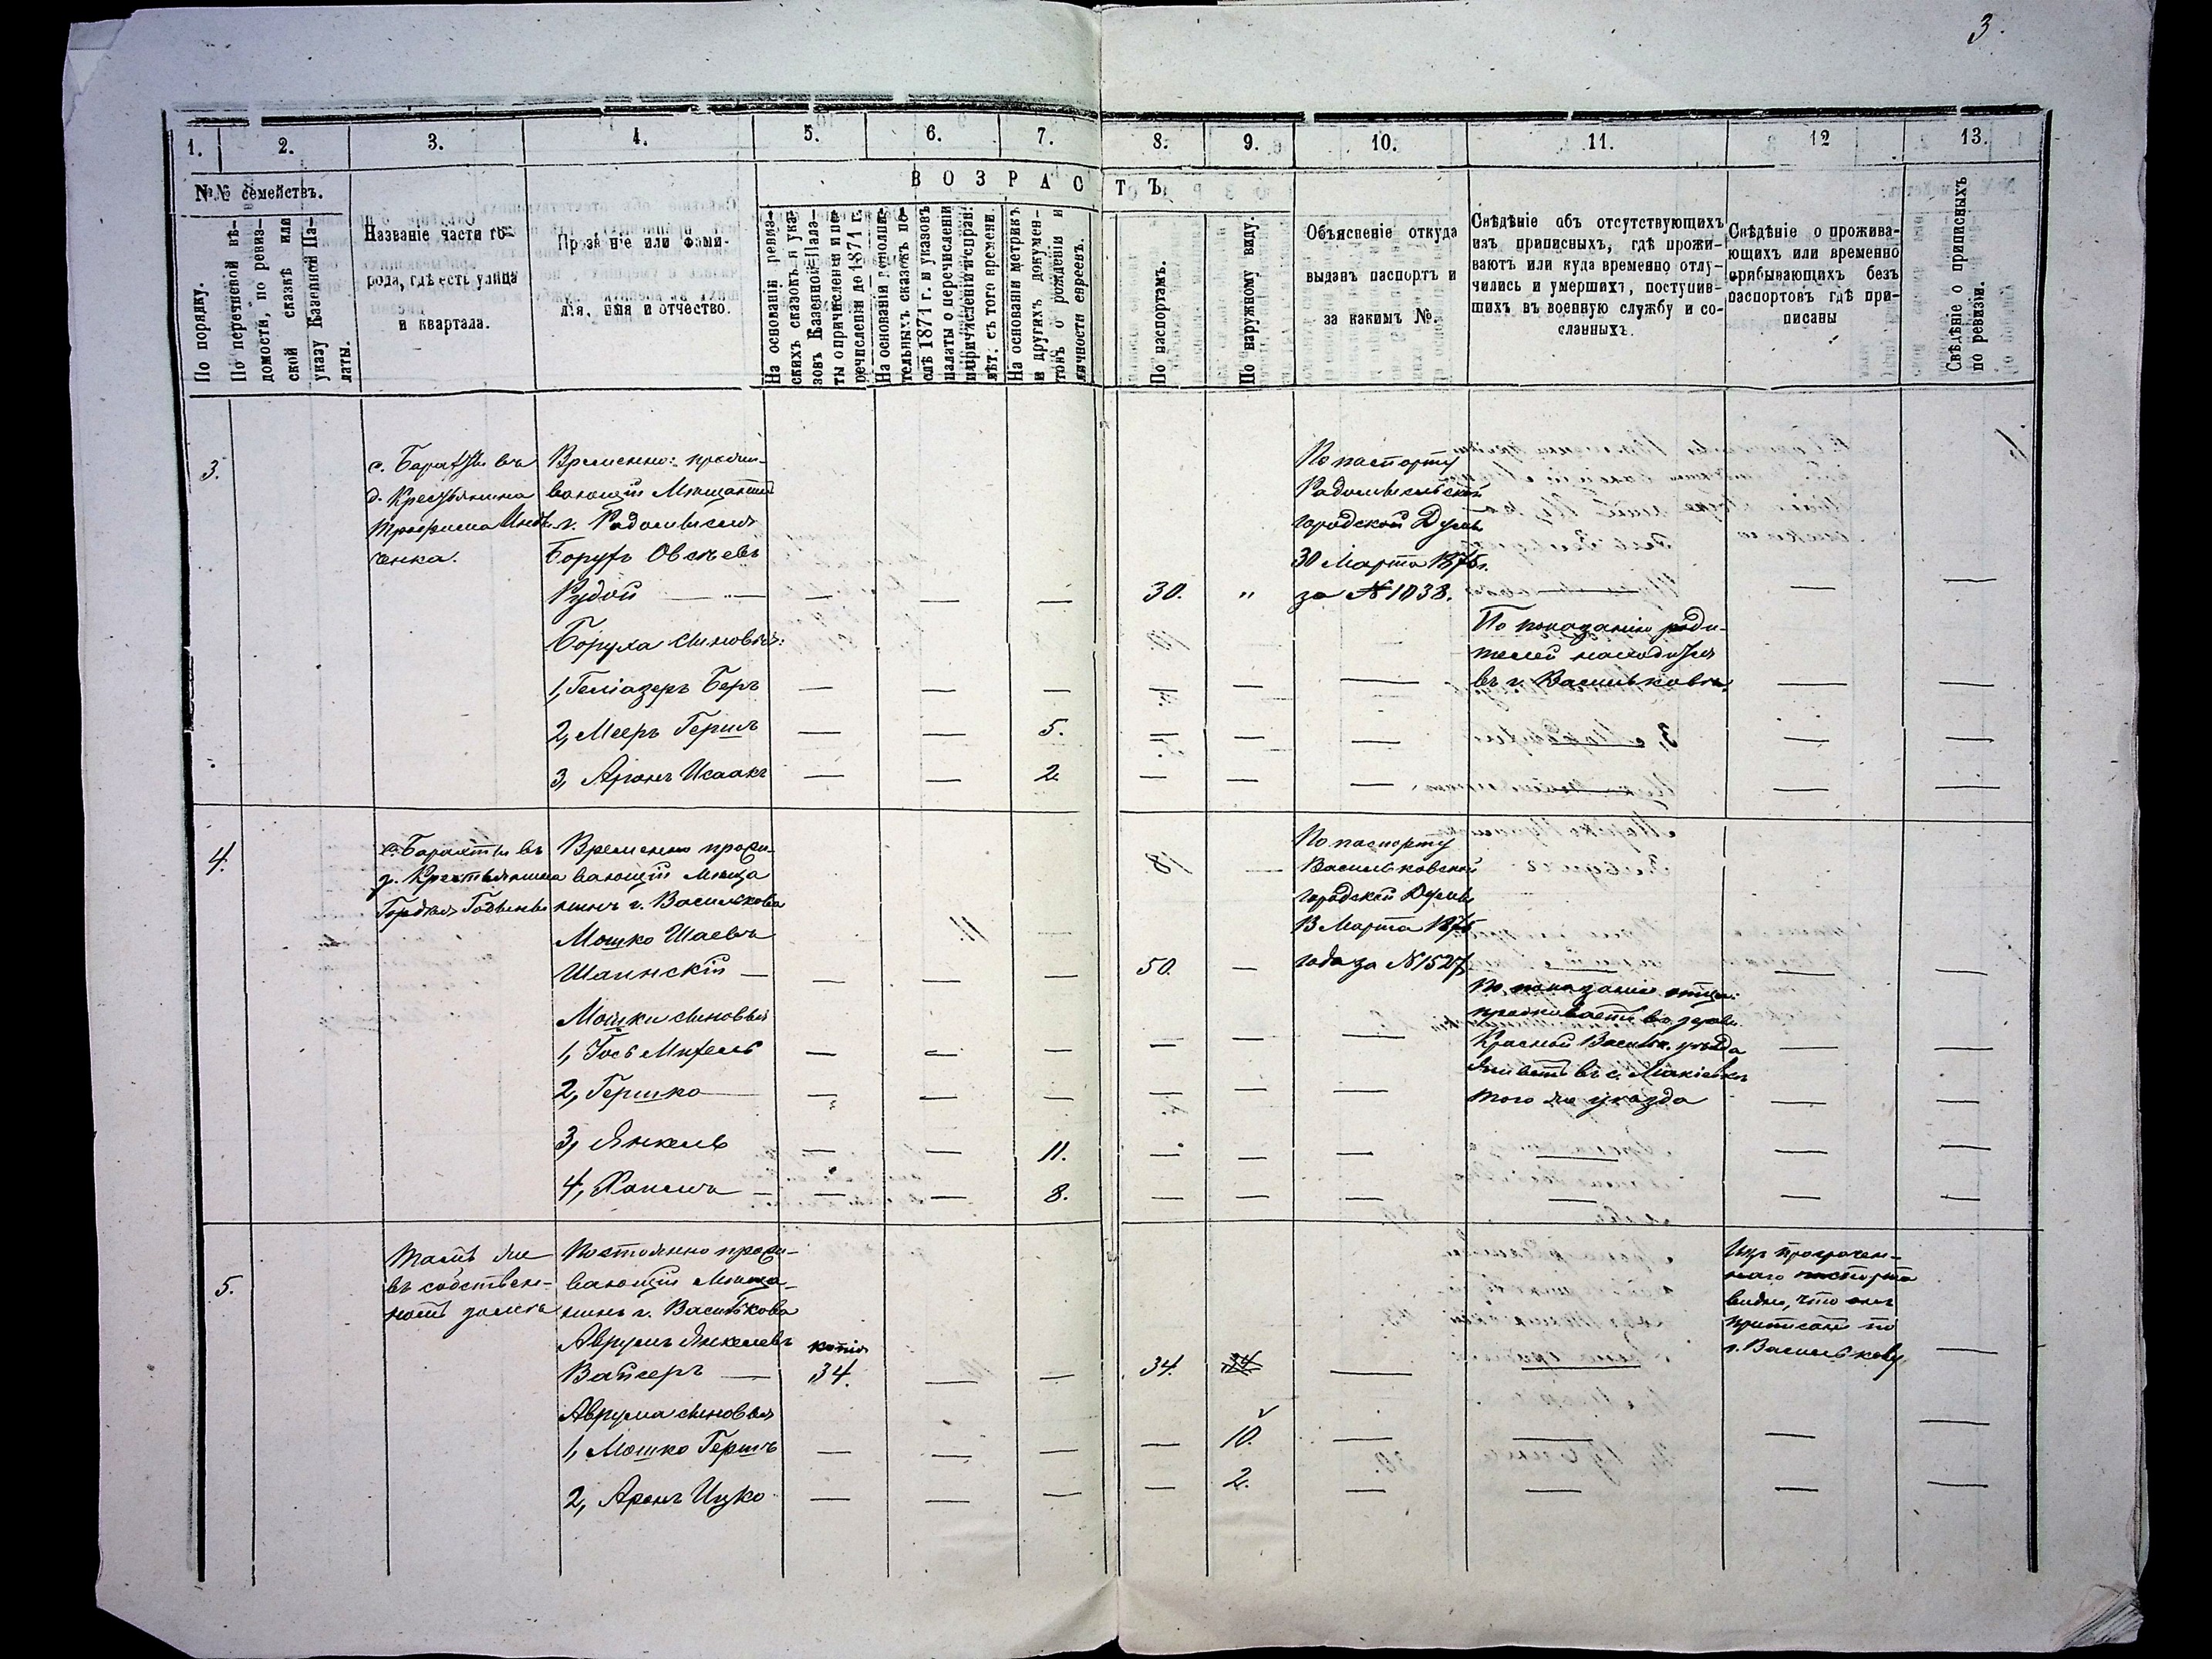 3.
1.
2.
3.
4.
5.
6.
7.
8.
9.
10.
11.
12
13.
№№ семействъ.
ВОЗРАСТЪ
По порядку.
По перечневой вѣ-
домости, по ревиз-
ской сказкѣ или
указу Казенной Па-
латы.
Названіе части го-
рода, гдѣ есть улица
и квартала.
Прозваніе или фами-
лія, имя и отчество.
На основаніи ревиз-
скихъ сказокъ и ука-
зовъ Казенной Пала-
ты о причисленіи и пе-
речисленіи до 1871 г.
На основаніи дополни-
тельныхъ сказокъ по-
слѣ 1871 г. и указовъ
палаты о перечисленіи
лѣт. съ того времени.
На основаніи метрикъ
и другихъ докумен-
товъ о рожденіи и
личности евреевъ.
По паспортамъ.
По наружному виду.
Объясненіе откуда
выданъ паспортъ и
за какимъ №.
Свѣдѣніе объ отсутствующихъ
изъ приписныхъ, гдѣ прожи-
ваютъ или куда временно отлу-
чились и умершихъ, поступив-
шихъ въ военную службу и со-
сланныхъ.
Свѣдѣніе о прожива-
ющихъ или временно
прибывающихъ безъ
паспортовъ гдѣ при-
писаны
Свѣдѣніе о приписныхъ
по ревизіи.
3.
с. Барахты въ
д. Крестьянина
Трофима
ченка.
Временно прожи-
вающій Мѣщанинъ
г. Радомысля
Борухъ Овсѣевъ
Рудой — — — — 30. "
По паспорту
Радомысльской
городской Думы
30 Марта 1875 г.
за № 1038. — — —
Боруха сыновья:
1, Геліазеръ Беръ — — — — — —
По показанію роди-
телей находится
въ г. Васильковѣ. — —
2, Мееръ Гершъ — — 5. — — — — —
3, Аронъ Исаакъ — — 2 — — — — — —
4.
с. Барахты въ
д. Крестьянина
Временно прожи-
вающій Мѣща
нинъ г. Василькова
Мошко Шаевъ
Шаинскій — — — — 50. —
По паспорту
Васильковской
городской Думы
13 Марта 1875
года за № 1527 — — —
Мошки сыновья
1, Гось Михель — — — — — —
По показанію отца
проживаетъ въ дерев.
Красной Васильк. уѣзда — —
2, Гершко — — — — — — —
живетъ въ с. Макіевкѣ
того же уѣзда — —
3, Янкель — — 11. — — — — — —
4, Хаимъ — — — 8. — — — — — —
5.
Тамъ же
въ собствен-
номъ домѣ
Постоянно прожи-
вающій Мѣща-
нинъ г. Василькова
Аврумъ Янкелевъ
Вайсеръ —
копія
34. — — 34. 34 — —
Изъ просрочен-
наго паспорта
видно, что онъ
приписанъ по
г. Василькову —
Аврума сыновья
1, Мошко Гершъ — — — — 10. — — — —
2, Аронъ Ицко — — — — 2. — — — —